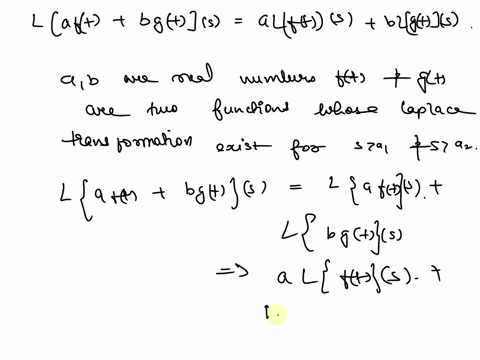 L[af(t) + bg(t)](s) = aL(f(t))(s) + bL[g(t)](s).
a,b are real numbers f(t) & g(t)
are two functions whose laplace
transformation exist for s>a₁ & s>a₂.
L{af(t) + bg(t)}(s) = L{af(t)}(s). +
L{bg(t)}(s)
=> aL{f(t)}(s). +